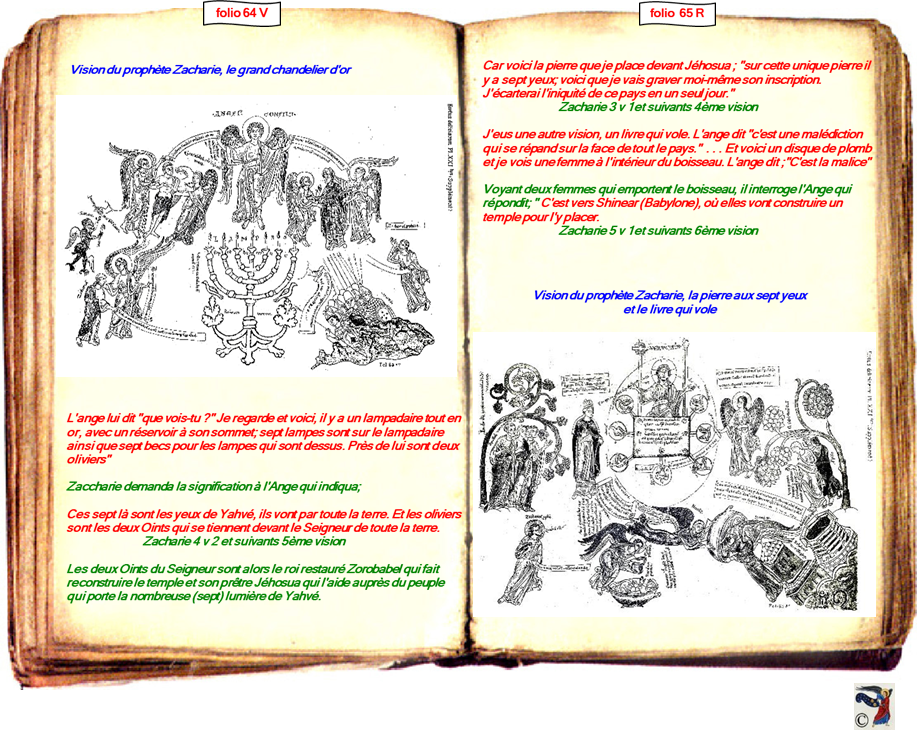 folio 64 V
Vision du prophète Zacharie, le grand chandelier d'or
L'ange lui dit "que vois-tu ?" Je regarde et voici, il y a un lampadaire tout en
or, avec un réservoir à son sommet; sept lampes sont sur le lampadaire
ainsi que sept becs pour les lampes qui sont dessus. Près de lui sont deux
oliviers"
Zaccharie demanda la signification à l'Ange qui indiqua;
Ces sept là sont les yeux de Yahvé, ils vont par toute la terre. Et les oliviers
sont les deux Oints qui se tiennent devant le Seigneur de toute la terre.
Zacharie 4 v 2 et suivants 5ème vision
Les deux Oints du Seigneur sont alors le roi restauré Zorobabel qui fait
reconstruire le temple et son prêtre Jéhosua qui l'aide auprès du peuple
qui porte la nombreuse (sept) lumière de Yahvé.
folio 65 R
Car voici la pierre que je place devant Jéhosua ; "sur cette unique pierre il
y a sept yeux; voici que je vais graver moi-même son inscription.
J'écarterai l'iniquité de ce pays en un seul jour."
Zacharie 3 v 1 et suivants 4ème vision
J'eus une autre vision, un livre qui vole. L'ange dit "c'est une malédiction
qui se répand sur la face de tout le pays." . . . Et voici un disque de plomb
et je vois une femme à l'intérieur du boisseau. L'ange dit ;"C'est la malice"
Voyant deux femmes qui emportent le boisseau, il interroge l'Ange qui
répondit; " C'est vers Shinear (Babylone), où elles vont construire un
temple pour l'y placer.
Zacharie 5 v 1 et suivants 6ème vision
Vision du prophète Zacharie, la pierre aux sept yeux
et le livre qui vole
©